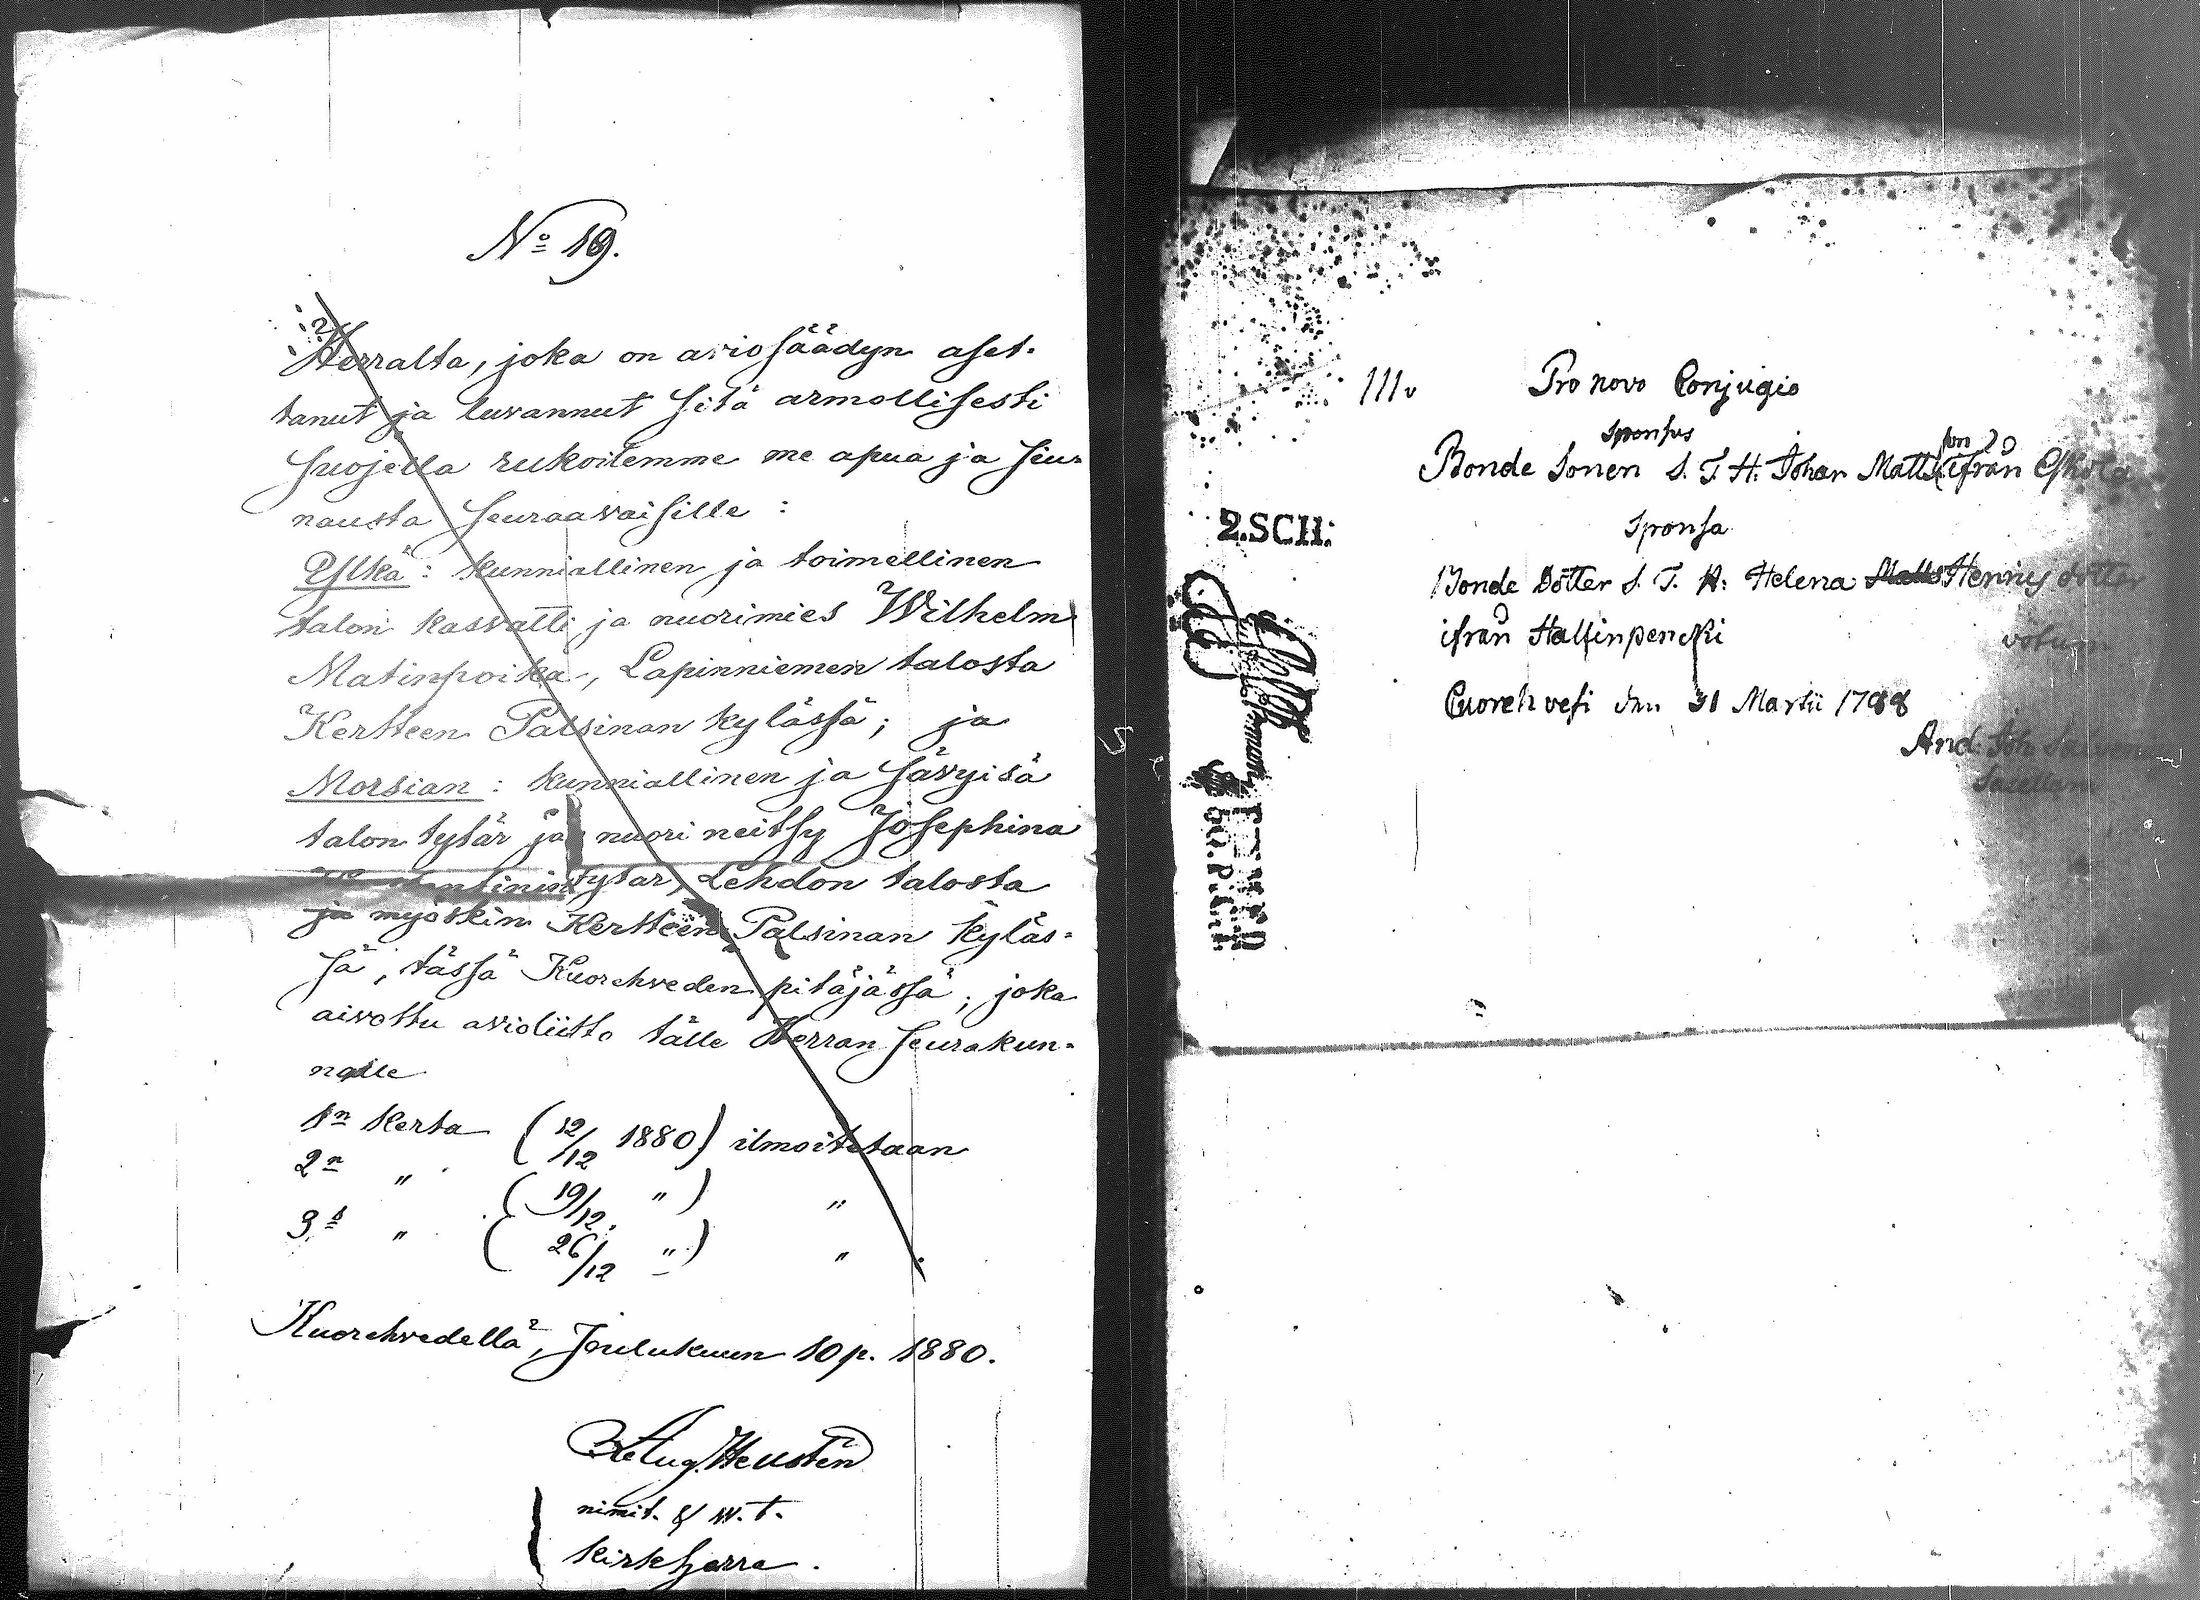 No 19.
Herralta, joka on aviosäädyn aset-
tanut ja luvannut sitä armollisesti
suojella rukoilemme me apua ja siu-
nausta seuraavaisille :
Ylkä : kunniallinen ja toimellinen
talon kasvatti ja nuorimies Wilhelm
Matinpoika, Lapinniemen talosta
Kertteen Palsinan kylässä; ja
Morsian : kunniallinen ja sävyisä
talon tytär ja nuori neitsy Josephina
tytär, Lehdon talosta
ja myöskin Kertteen Palsinan kyläs-
sä, tässä Kuorehveden pitäjässä, joka
aivottu avioliitto tälle Herran seurakun-
nalle
1n kerta (12/12 1880) ilmoitetaan
2n " (19/12 ") "
3s " (26/12 ") "
Kuorehvedellä, Joulukuun 10 p. 1880.
Aug. Hellstén
nimit. & w. t.
kirkherra.
111v
Pro novo Conjugio
Sponsus
Bonde Sonen S. T. H. Johan Matts son ifrån Eskola
Sponsa
Bonde Dotter S. T. H: Helena Matts Henrics dotter
ifrån Hallinpencki
Cuorehvesi den 31 Martii 1788
And. Joh.
Sacellan
2.SCH: